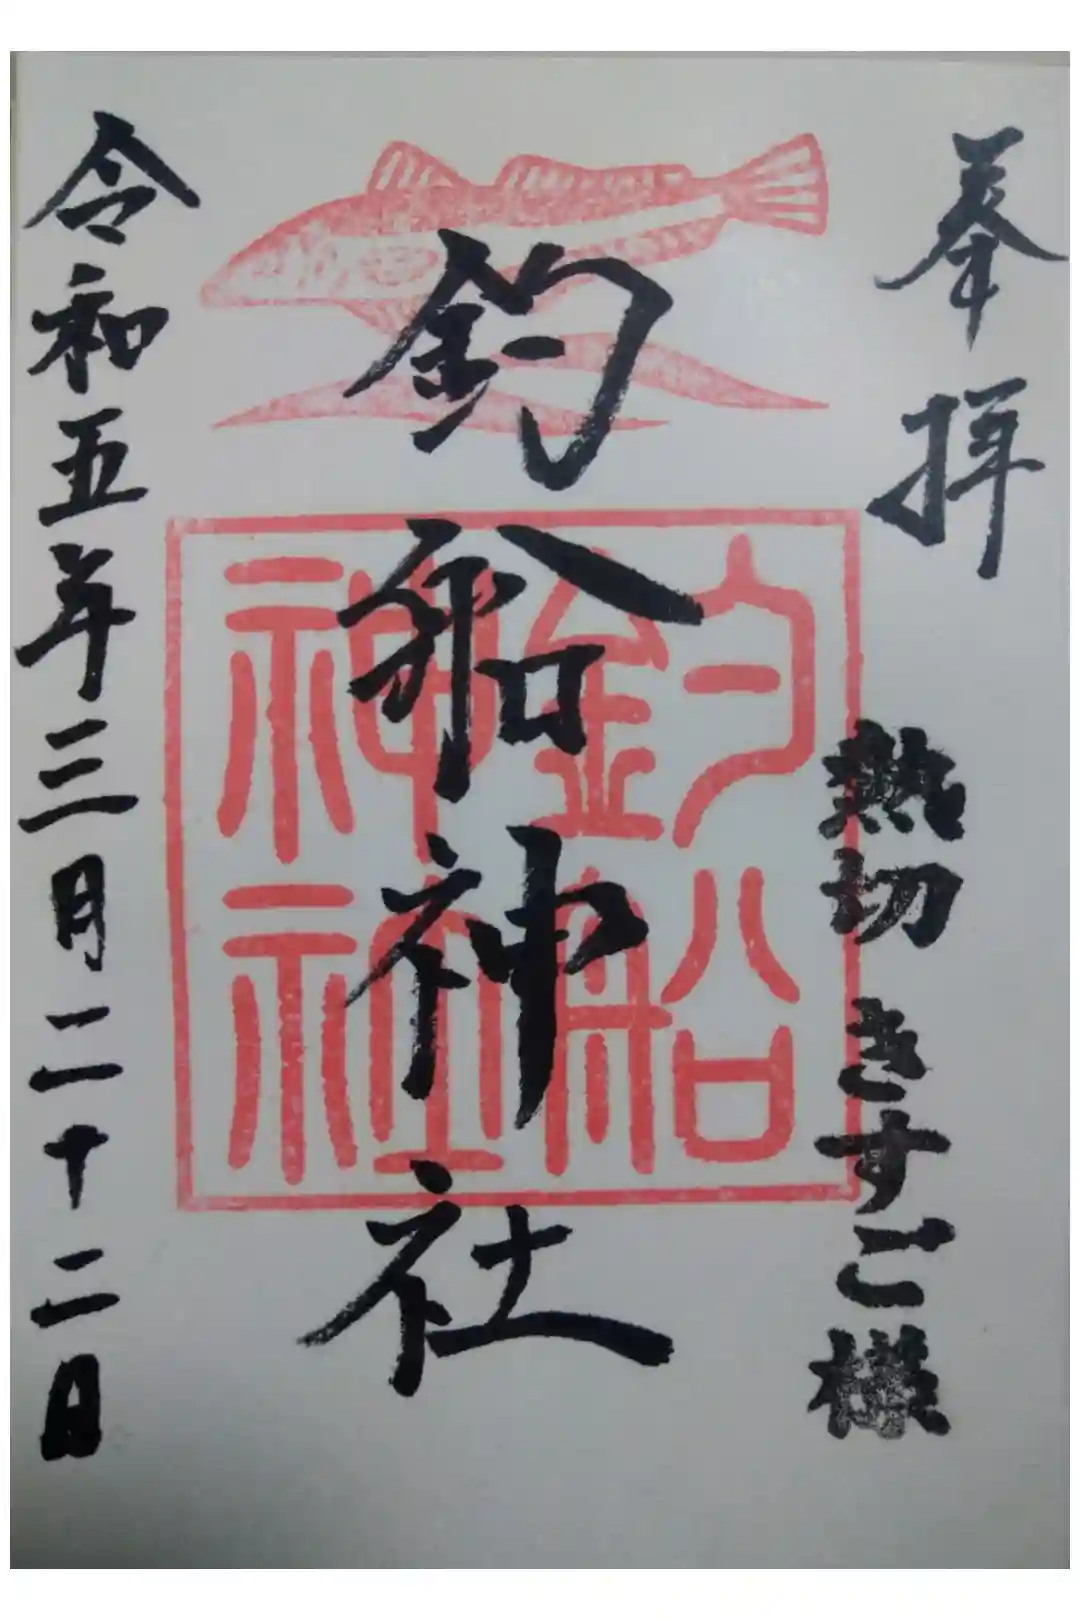 奉拝
熱切 きすご様
釣船神社
釣船神社
令和五年三月二十二日